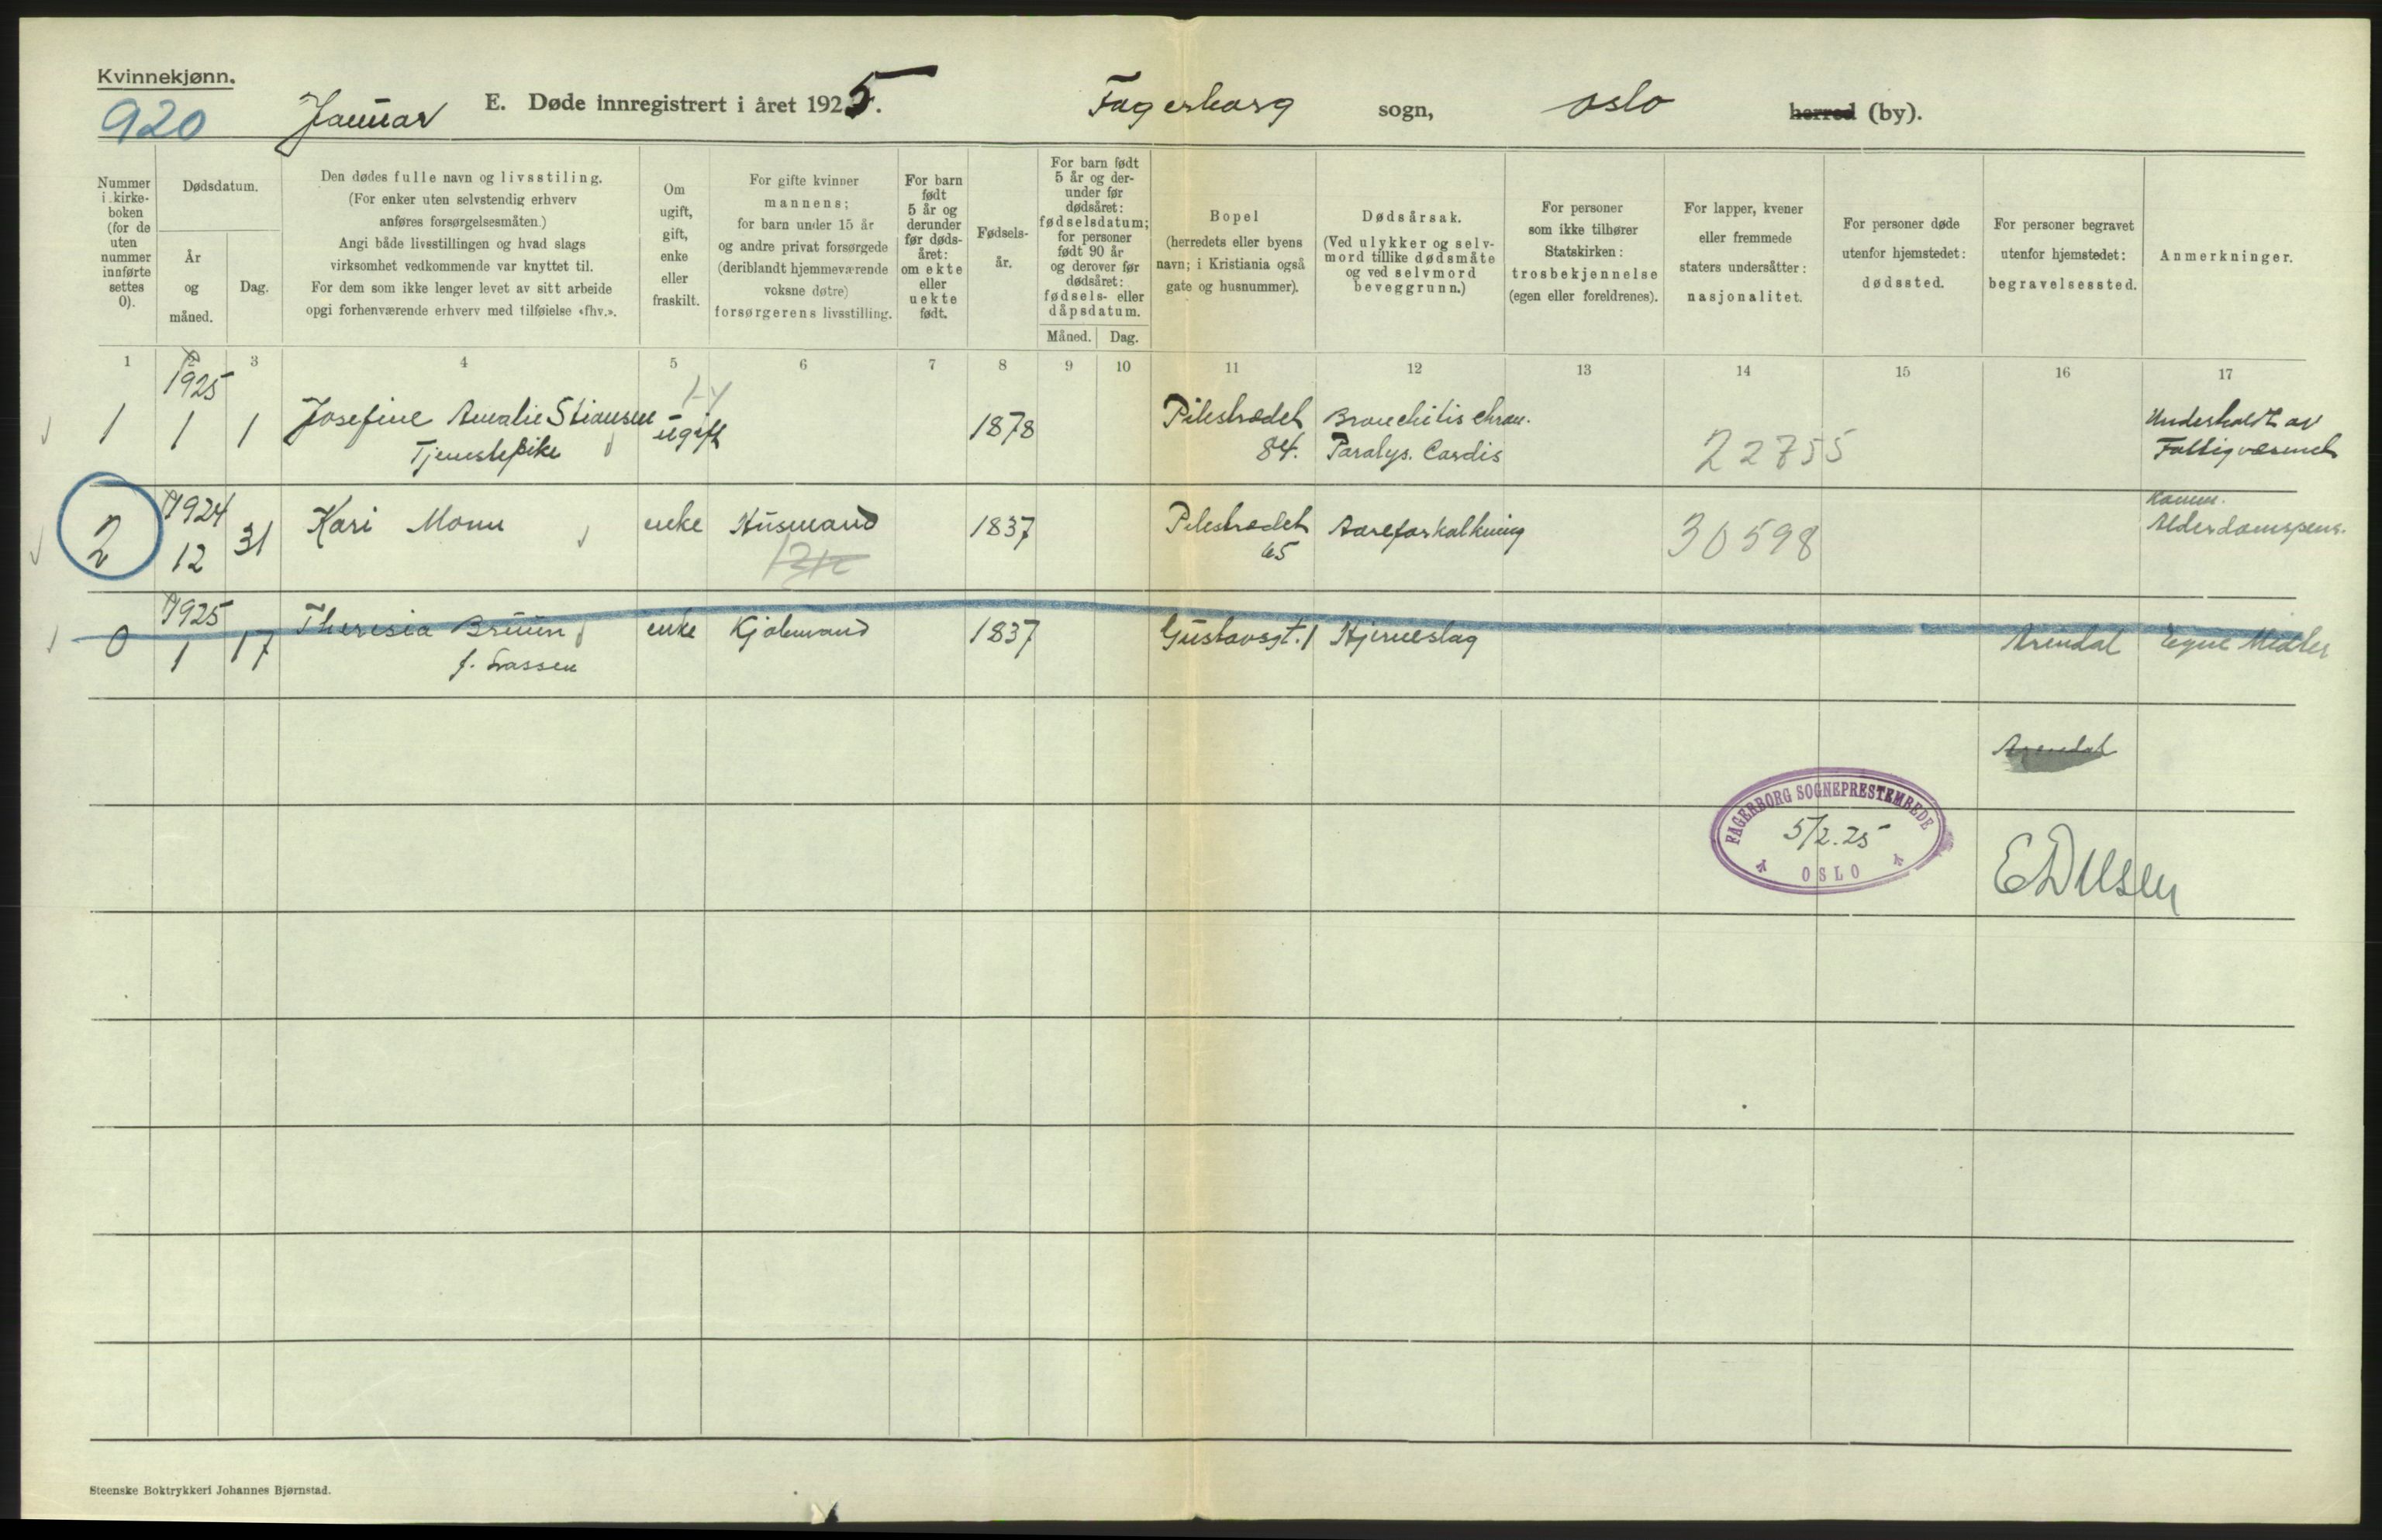 Kvinnekjønn.
920
Januar
E. Døde innregistrert i året 1925.
Fagerborg sogn, Oslo herred (by).
Nummer i kirke-
boken
(for de
uten
nummer
innførte
settes
0).
Dødsdatum.
År
og
måned.
Dag.
Den dødes fulle navn og livsstiling.
(For enker uten selvstendig erhverv
anføres forsørgelsesmåten.)
Angi både livsstillingen og hvad slags
virksomhet vedkommende var knyttet til.
For dem som ikke lenger levet av sitt arbeide
opgi forhenværende erhverv med tilføielse «fhv.».
Om
ugift,
gift,
enke
eller
fraskilt.
For gifte kvinner
mannens;
for barn under 15 år
og andre privat forsørgede
(deriblandt hjemmeværende
voksne døtre)
forsørgerens livsstilling.
For barn
født
5 år og
derunder
før døds-
året:
om ekte
eller
uekte
født.
Fødsels-
år.
For barn født
5 år og der-
under før
dødsåret:
fødselsdatum;
for personer
født 90 år
og derover før
dødsåret:
fødsels- eller
dåpsdatum.
Måned.
Dag.
Bopel
(herredets eller byens
navn; i Kristiania også
gate og husnummer).
Dødsårsak.
(Ved ulykker og selv-
mord tillike dødsmåte
og ved selvmord
beveggrunn.)
For personer
som ikke tilhører
Statskirken:
trosbekjennelse
(egen eller foreldrenes).
For lapper, kvener
eller fremmede
staters undersåtter:
nasjonalitet.
For personer døde
utenfor hjemstedet:
dødssted.
For personer begravet
utenfor hjemstedet:
begravelsessted.
Anmerkninger.
1 2 3 4 5 6 7 8 9 10 11 12 13 14 15 16 17
1925
1 1 1 Josefine Amalie Stiansen ugift 1878 Pilestrædet Bronchitis chron. 22755 Underholdt av
Tjenestepike 84. Paralys. Cordis Fattigvæsenet
1924
2 12 31 Kari Monu enke Husmand 1837 Pilestrædet Aareforkalkning 30598 Komm.
65 Alderdomspens.
1925
0 1 17 Theresia Bruun enke Kjøbmand 1837 Gustavsgt. 1 Hjerneslag Arendal Egne Midler
f. Lassen
Arendal
FAGERBORG SOGNEPRESTEMBEDE
5/2.25
OSLO
Steenske Boktrykkeri Johannes Bjørnstad.